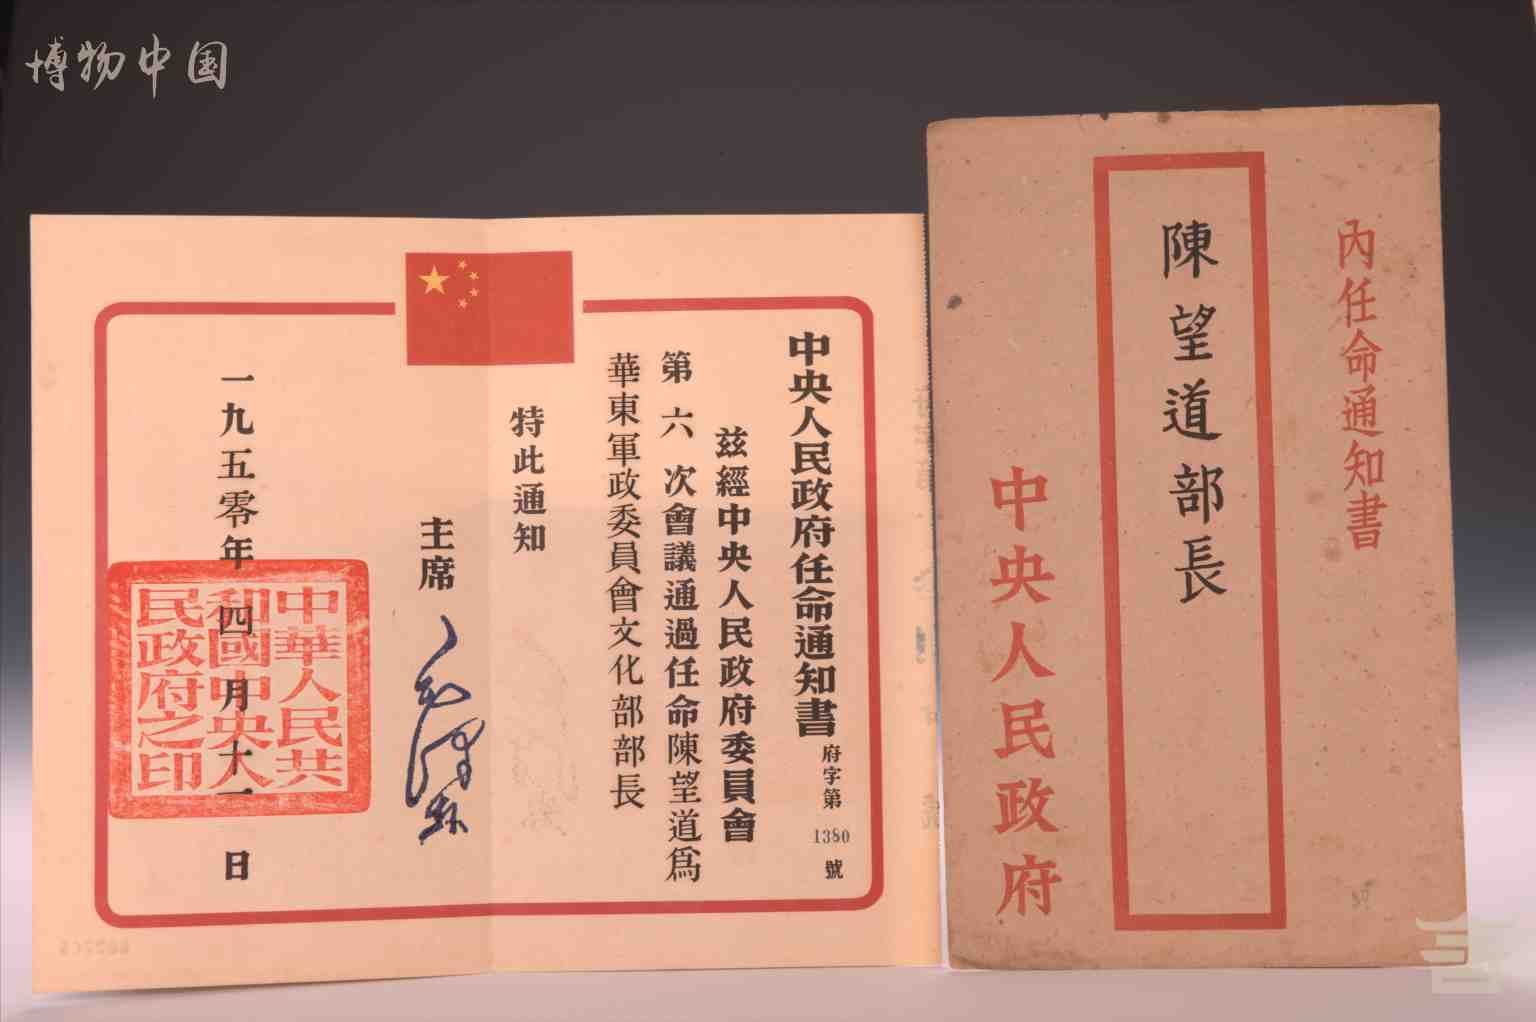 博物中国
中央人民政府任命通知書
府字第1380號
茲經中央人民政府委員會
第六次會議通過任命陳望道爲
華東軍政委員會文化部部長
特此通知
主席
毛澤東
一九五零年四月十一日
中華人民共
和國中央人
民政府之印
內任命通知書
陳望道部長
中央人民政府